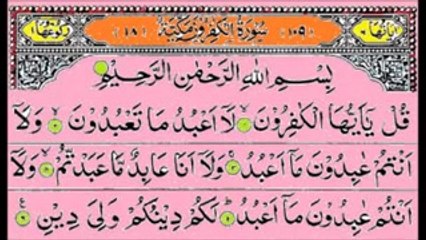 اٰیاتها ٦ ﴿١٠٩﴾ سُوْرَةُ الْكٰفِرُوْنَ مَكِّیَّةٌ ﴿١٨﴾ ركوعها ١
بِسْمِ اللّٰهِ الرَّحْمٰنِ الرَّحِیْمِ
قُلْ یٰۤاَیُّهَا الْكٰفِرُوْنَ ۙ لَاۤ اَعْبُدُ مَا تَعْبُدُوْنَ ۙ وَلَاۤ
اَنْتُمْ عٰبِدُوْنَ مَاۤ اَعْبُدُ ۚ وَلَاۤ اَنَا عَابِدٌ مَّا عَبَدْتُّمْ ۙ وَلَاۤ
اَنْتُمْ عٰبِدُوْنَ مَاۤ اَعْبُدُ ؕ لَكُمْ دِیْنُكُمْ وَلِیَ دِیْنِ